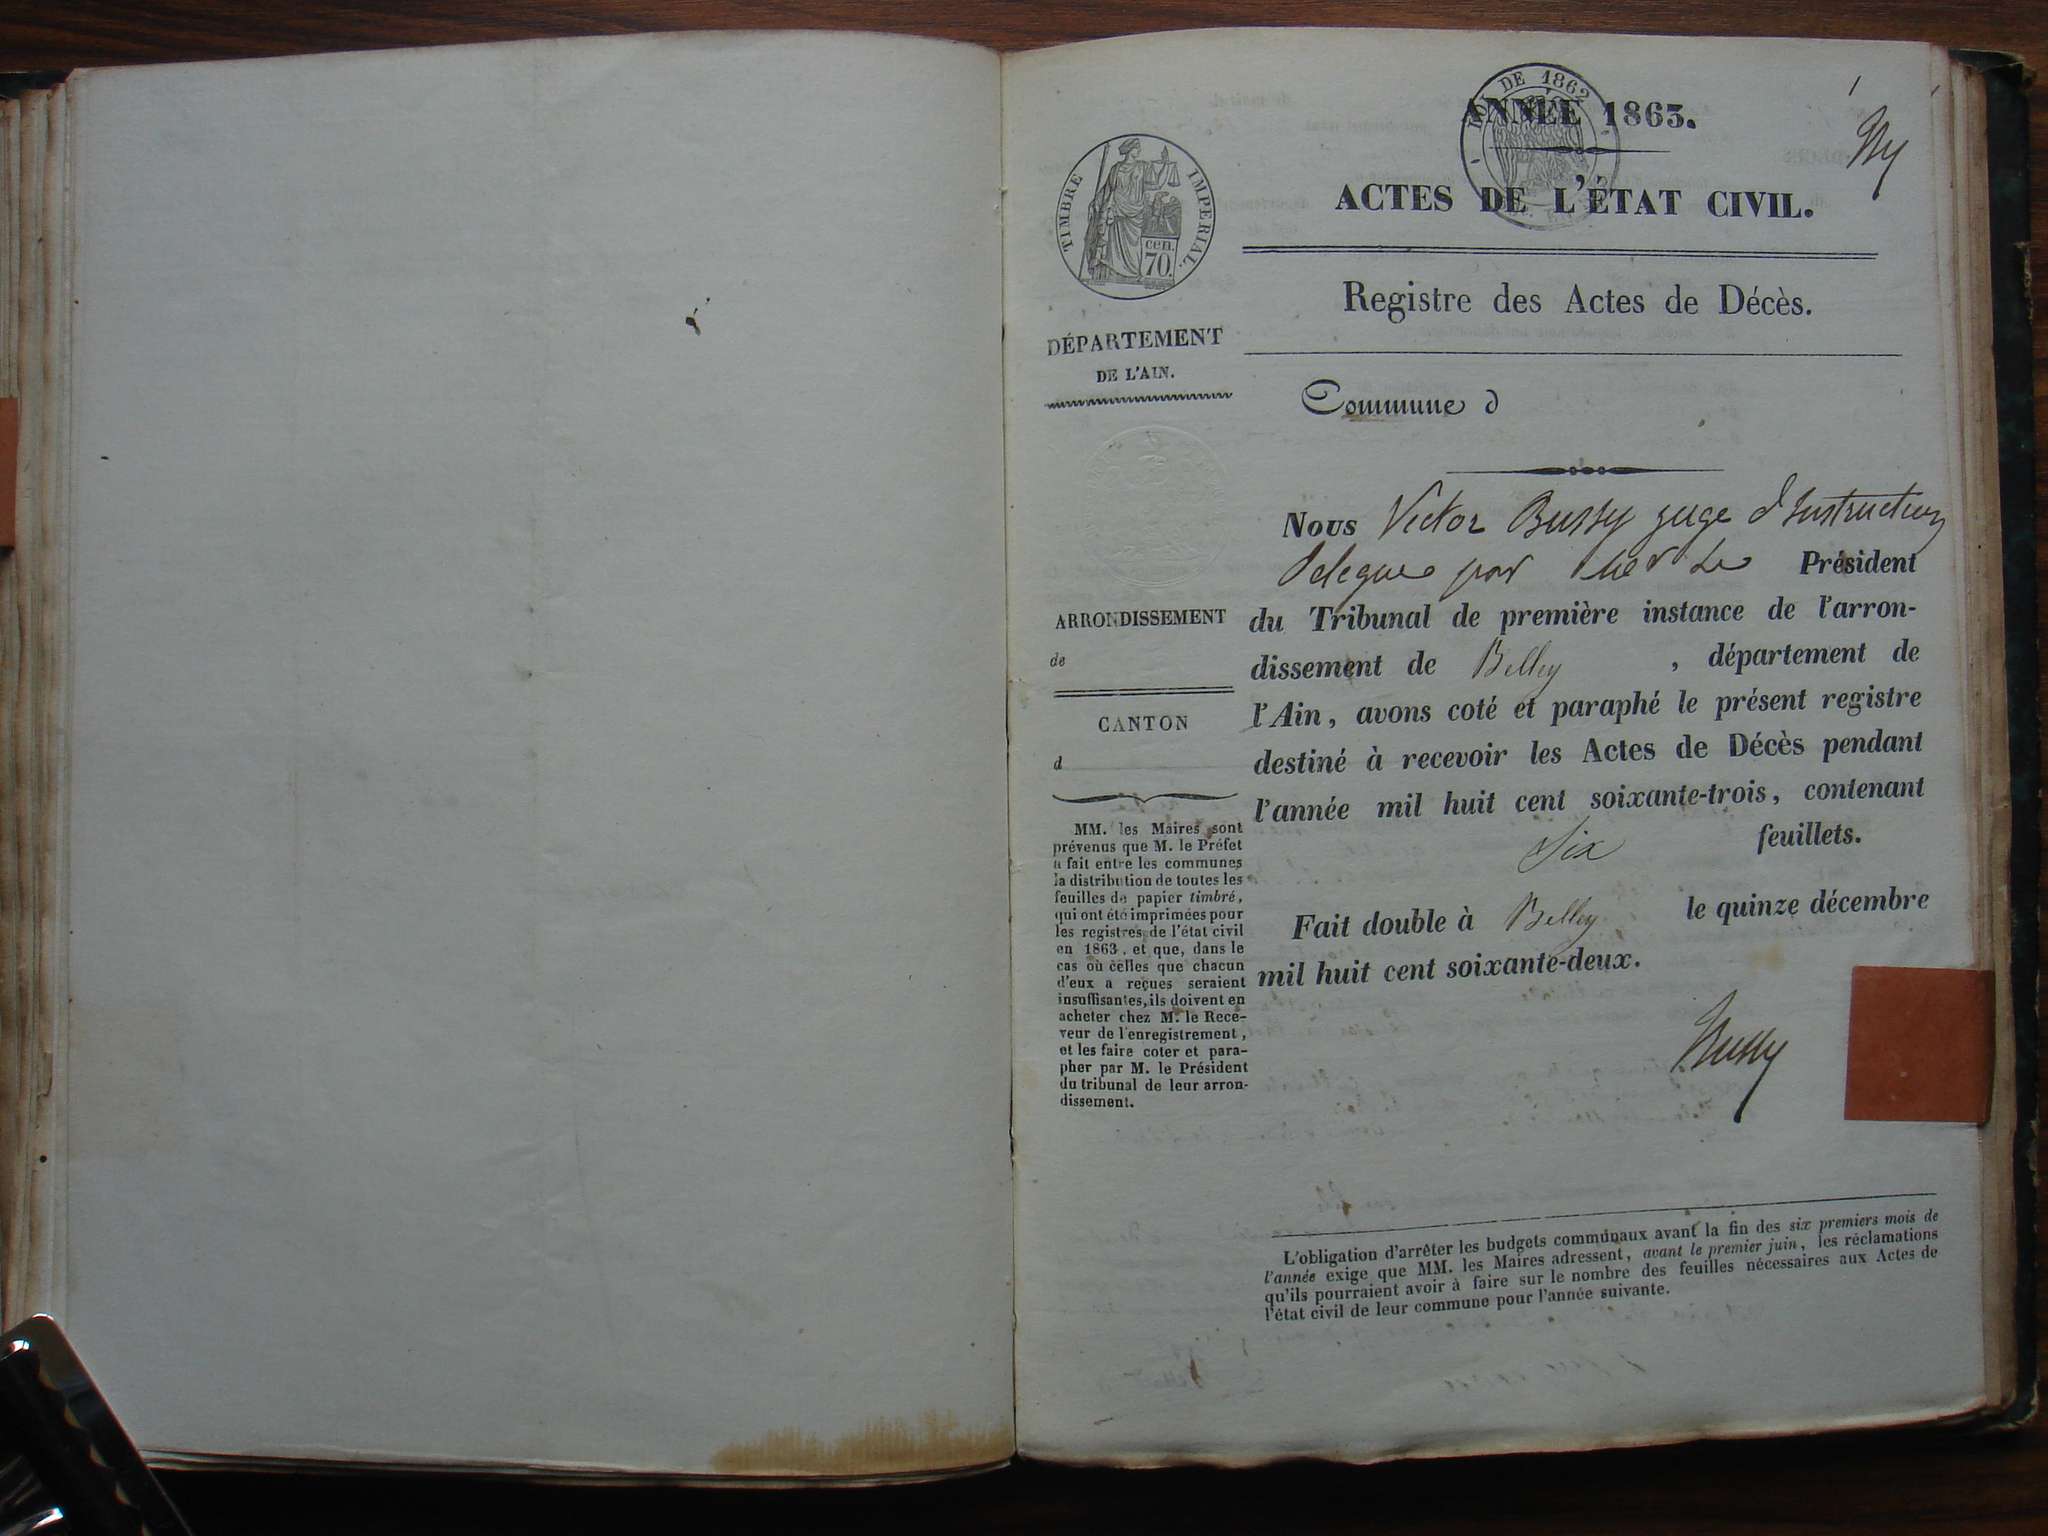 LOI DE 1862
ANNÉE 1863.
ACTES DE L'ÉTAT CIVIL.
Registre des Actes de Décès.
Commune d
TIMBRE IMPERIAL.
cen.
70.
DÉPARTEMENT
DE L'AIN.
ARRONDISSEMENT
de
CANTON
d
MM. les Maires sont
prévenus que M. le Préfet
a fait entre les communes
la distribution de toutes les
feuilles de papier timbré,
qui ont été imprimées pour
les registres de l'état civil
en 1863, et que, dans le
cas où celles que chacun
d'eux a reçues seraient
insuffisantes, ils doivent en
acheter chez M. le Rece-
veur de l'enregistrement,
et les faire coter et para-
pher par M. le Président
du tribunal de leur arron-
dissement.
Nous Victor Bussy juge d'Instruction
delegue par Mr Le Président
du Tribunal de première instance de l'arron-
dissement de Belley, département de
l'Ain, avons coté et paraphé le présent registre
destiné à recevoir les Actes de Décès pendant
l'année mil huit cent soixante-trois, contenant
Six feuillets.
Fait double à Belley le quinze décembre
mil huit cent soixante-deux.
Bussy
L'obligation d'arrêter les budgets communaux avant la fin des six premiers mois de
l'année exige que MM. les Maires adressent, avant le premier juin, les réclamations
qu'ils pourraient avoir à faire sur le nombre des feuilles nécessaires aux Actes de
l'état civil de leur commune pour l'année suivante.